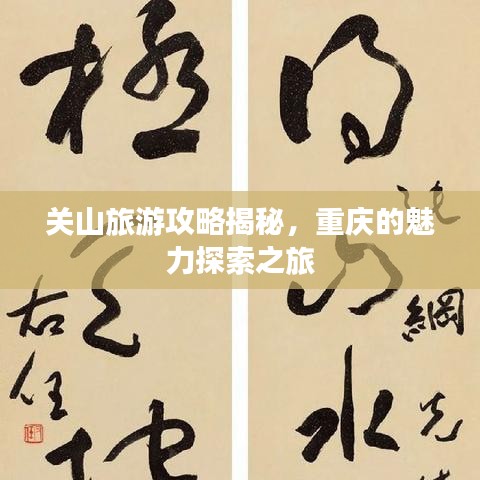 关山旅游攻略揭秘，重庆的魅
力探索之旅
得山水
綱先
極天地
右任